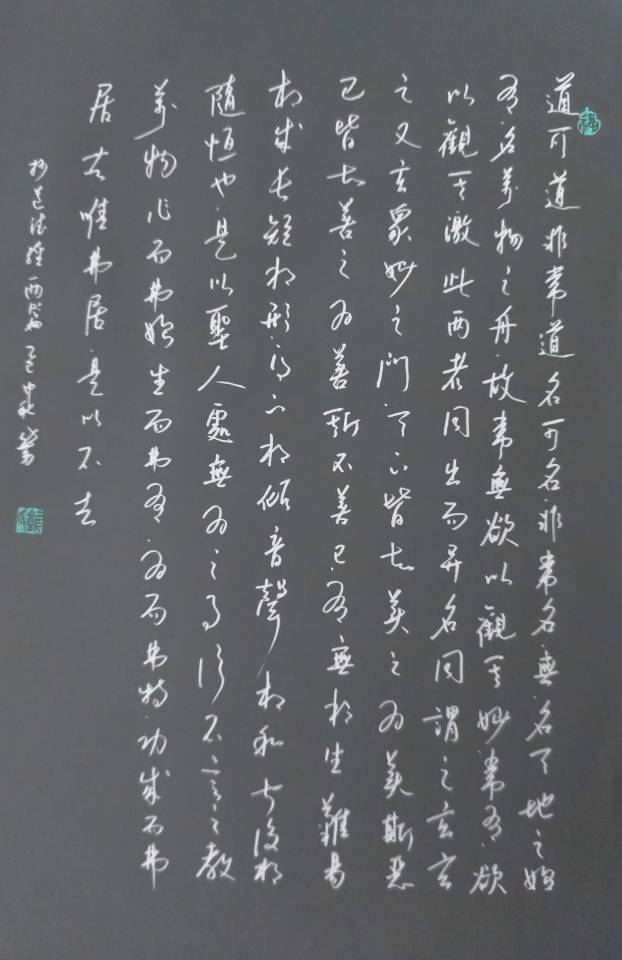 道可道非常道名可名非常名無名天地之始
有名萬物之母故常無欲以觀其妙常有欲
以觀其徼此兩者同出而異名同謂之玄玄
之又玄眾妙之門天下皆知美之為美斯惡
已皆知善之為善斯不善已有無相生難易
相成長短相形高下相傾音聲相和前後相
隨恒也是以聖人處無為之事行不言之教
萬物作而弗始生而弗有為而弗恃功成而弗
居夫唯弗居是以不去
抄道德經兩篇
福